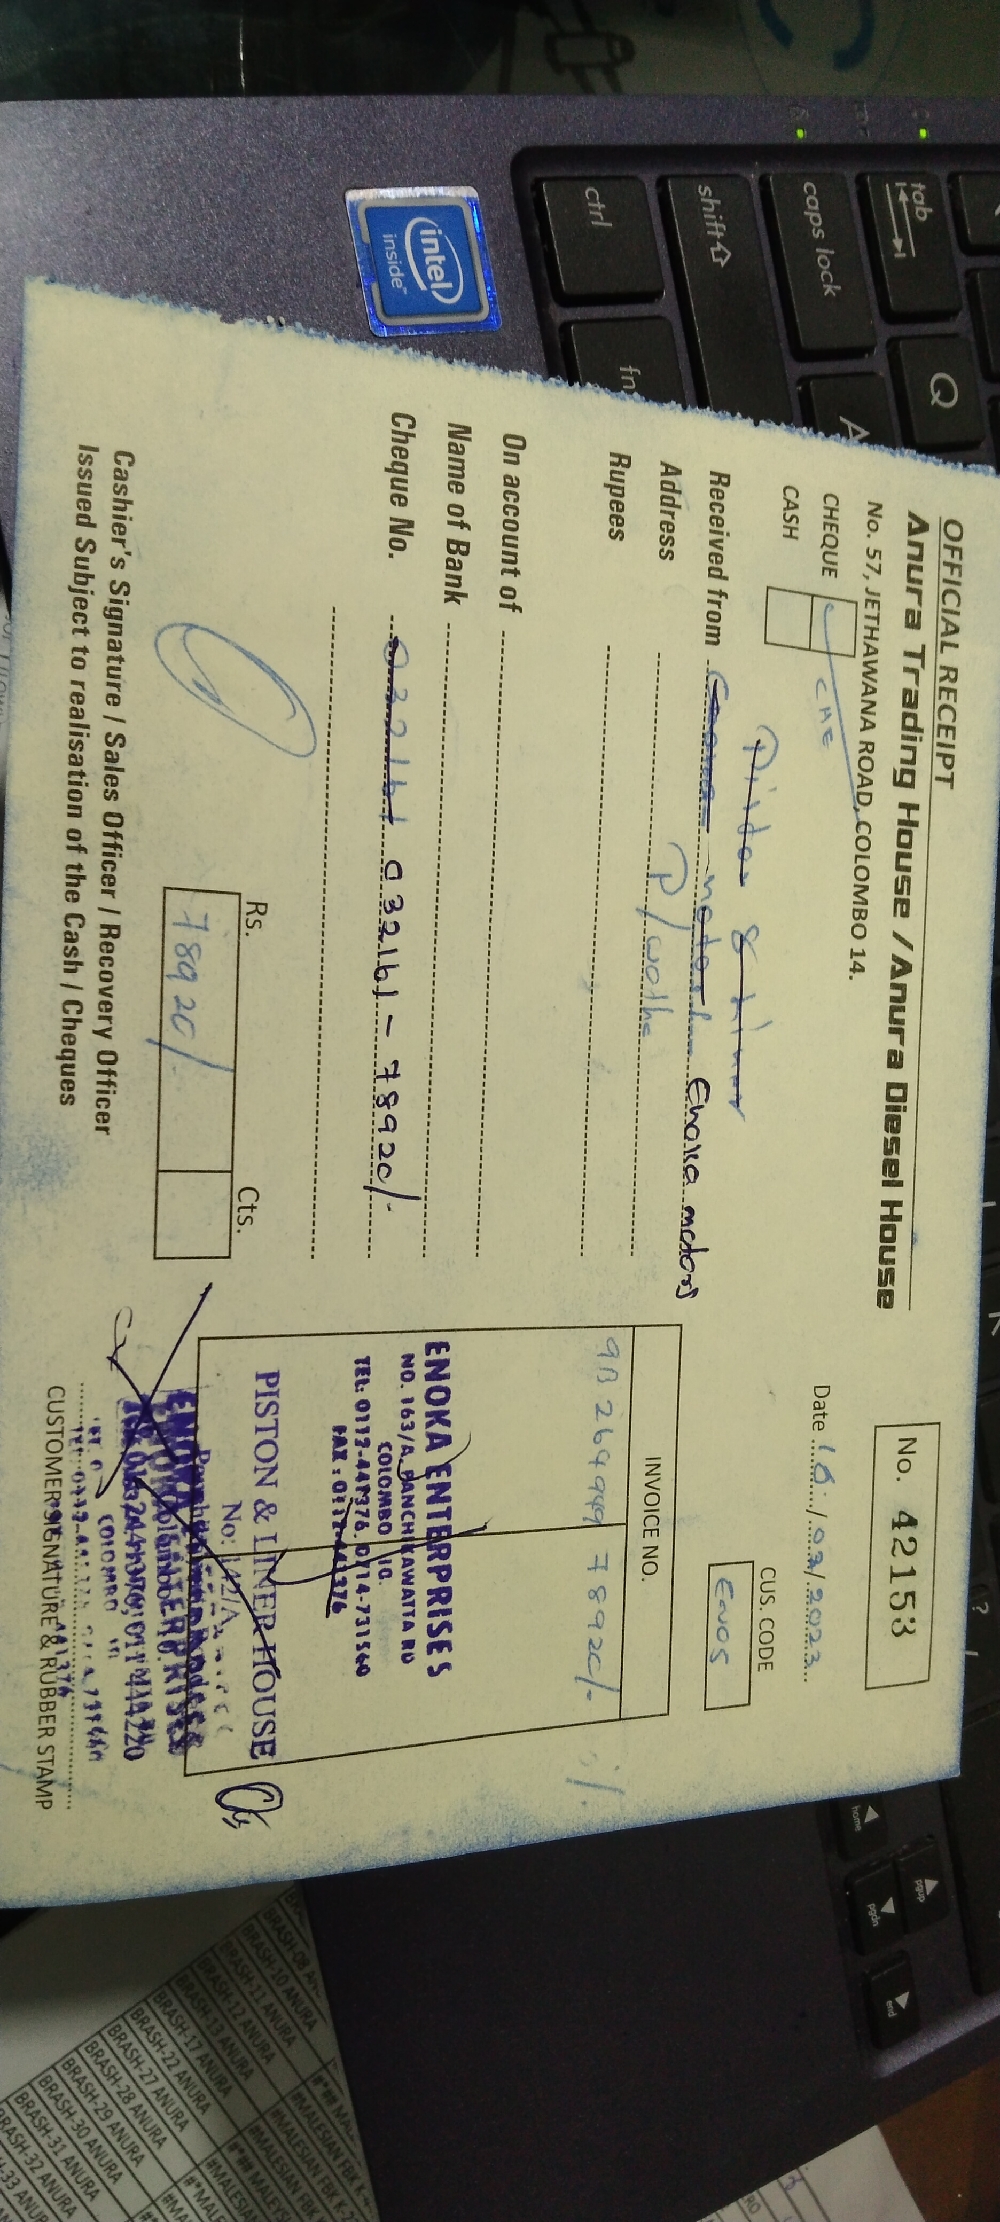 OFFICIAL RECEIPT
Anura Trading House / Anura Diesel House
No. 57, JETHAWANA ROAD, COLOMBO 14.
No. 42153
CHEQUE
CASH
CHE
Date 16/02/2023
CUS. CODE
EN05
Piston & Liner
Received from motor Enoka motors
Address P/watha
Rupees
On account of
Name of Bank
Cheque No. 032161 032161 - 78920/-
INVOICE NO.
78920/-
ENOKA ENTERPRISES
NO. 163/A, PANCHIKAWATTA RD
COLOMBO 10.
TEL: 0113-441376, 0714-731560
FAX : 0112-441376
PISTON & LINER HOUSE
No: 142/A,
ENOKA ENTERPRISES
COLOMBO
Rs. Cts.
78920/-
Cashier's Signature / Sales Officer / Recovery Officer
Issued Subject to realisation of the Cash / Cheques
CUSTOMER SIGNATURE & RUBBER STAMP
intel
inside™
ctrl
fn
shift
caps lock
tab
Q
A
home
pgup
pgdn
end
BRASH-10 ANURA
BRASH-11 ANURA
BRASH-12 ANURA
BRASH-13 ANURA
BRASH-17 ANURA
BRASH-22 ANURA
BRASH-27 ANURA
BRASH-28 ANURA
BRASH-29 ANURA
BRASH-30 ANURA
BRASH-31 ANURA
BRASH-32 ANURA
#MALESIAN FBK